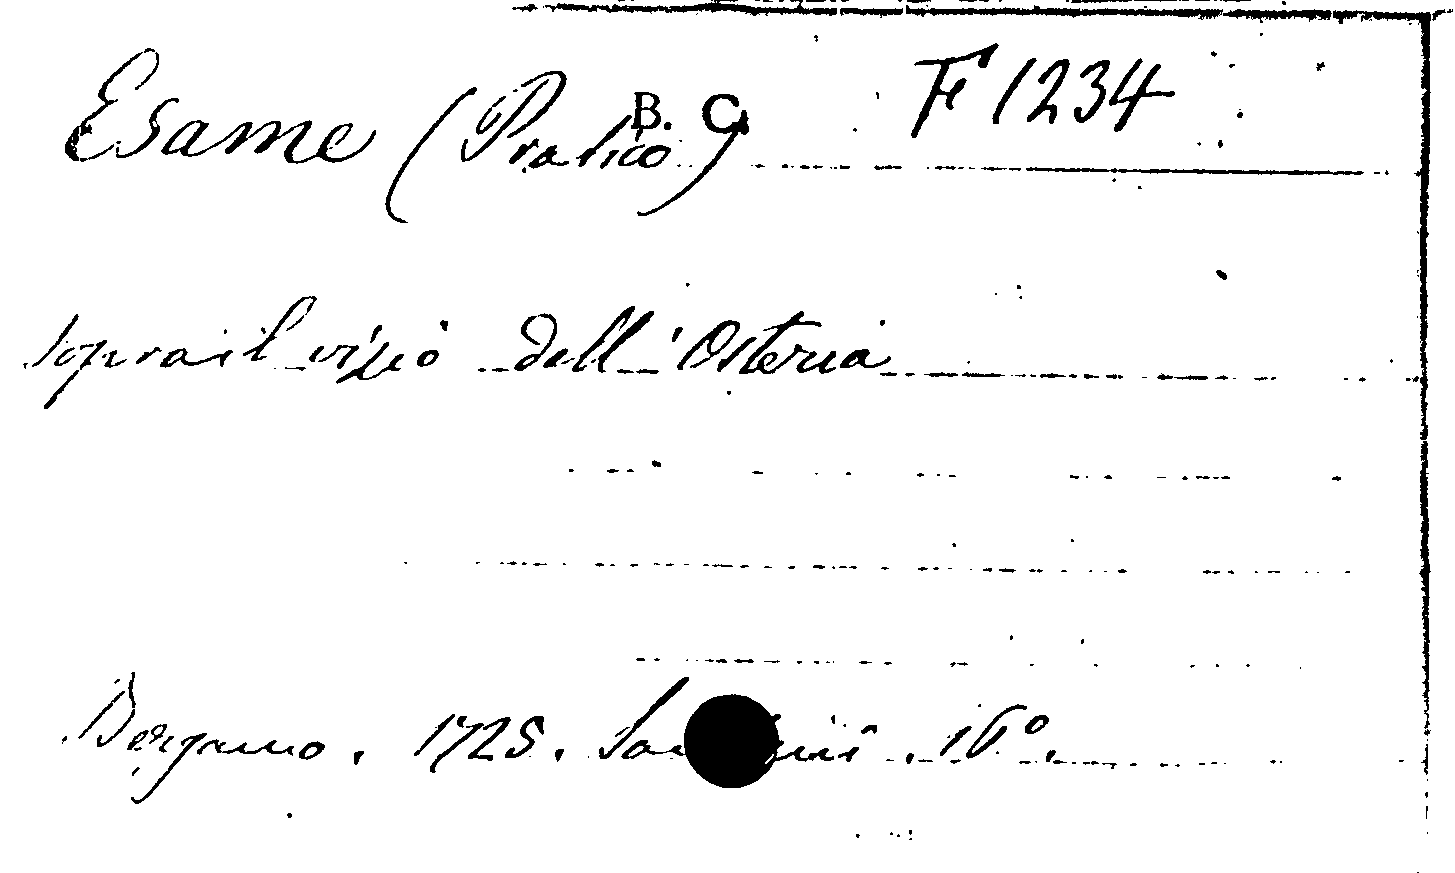 Esame (Pratico) B. C. F 1234
sopra il vizio dell'Osteria
Bergamo. 1725. 16º.